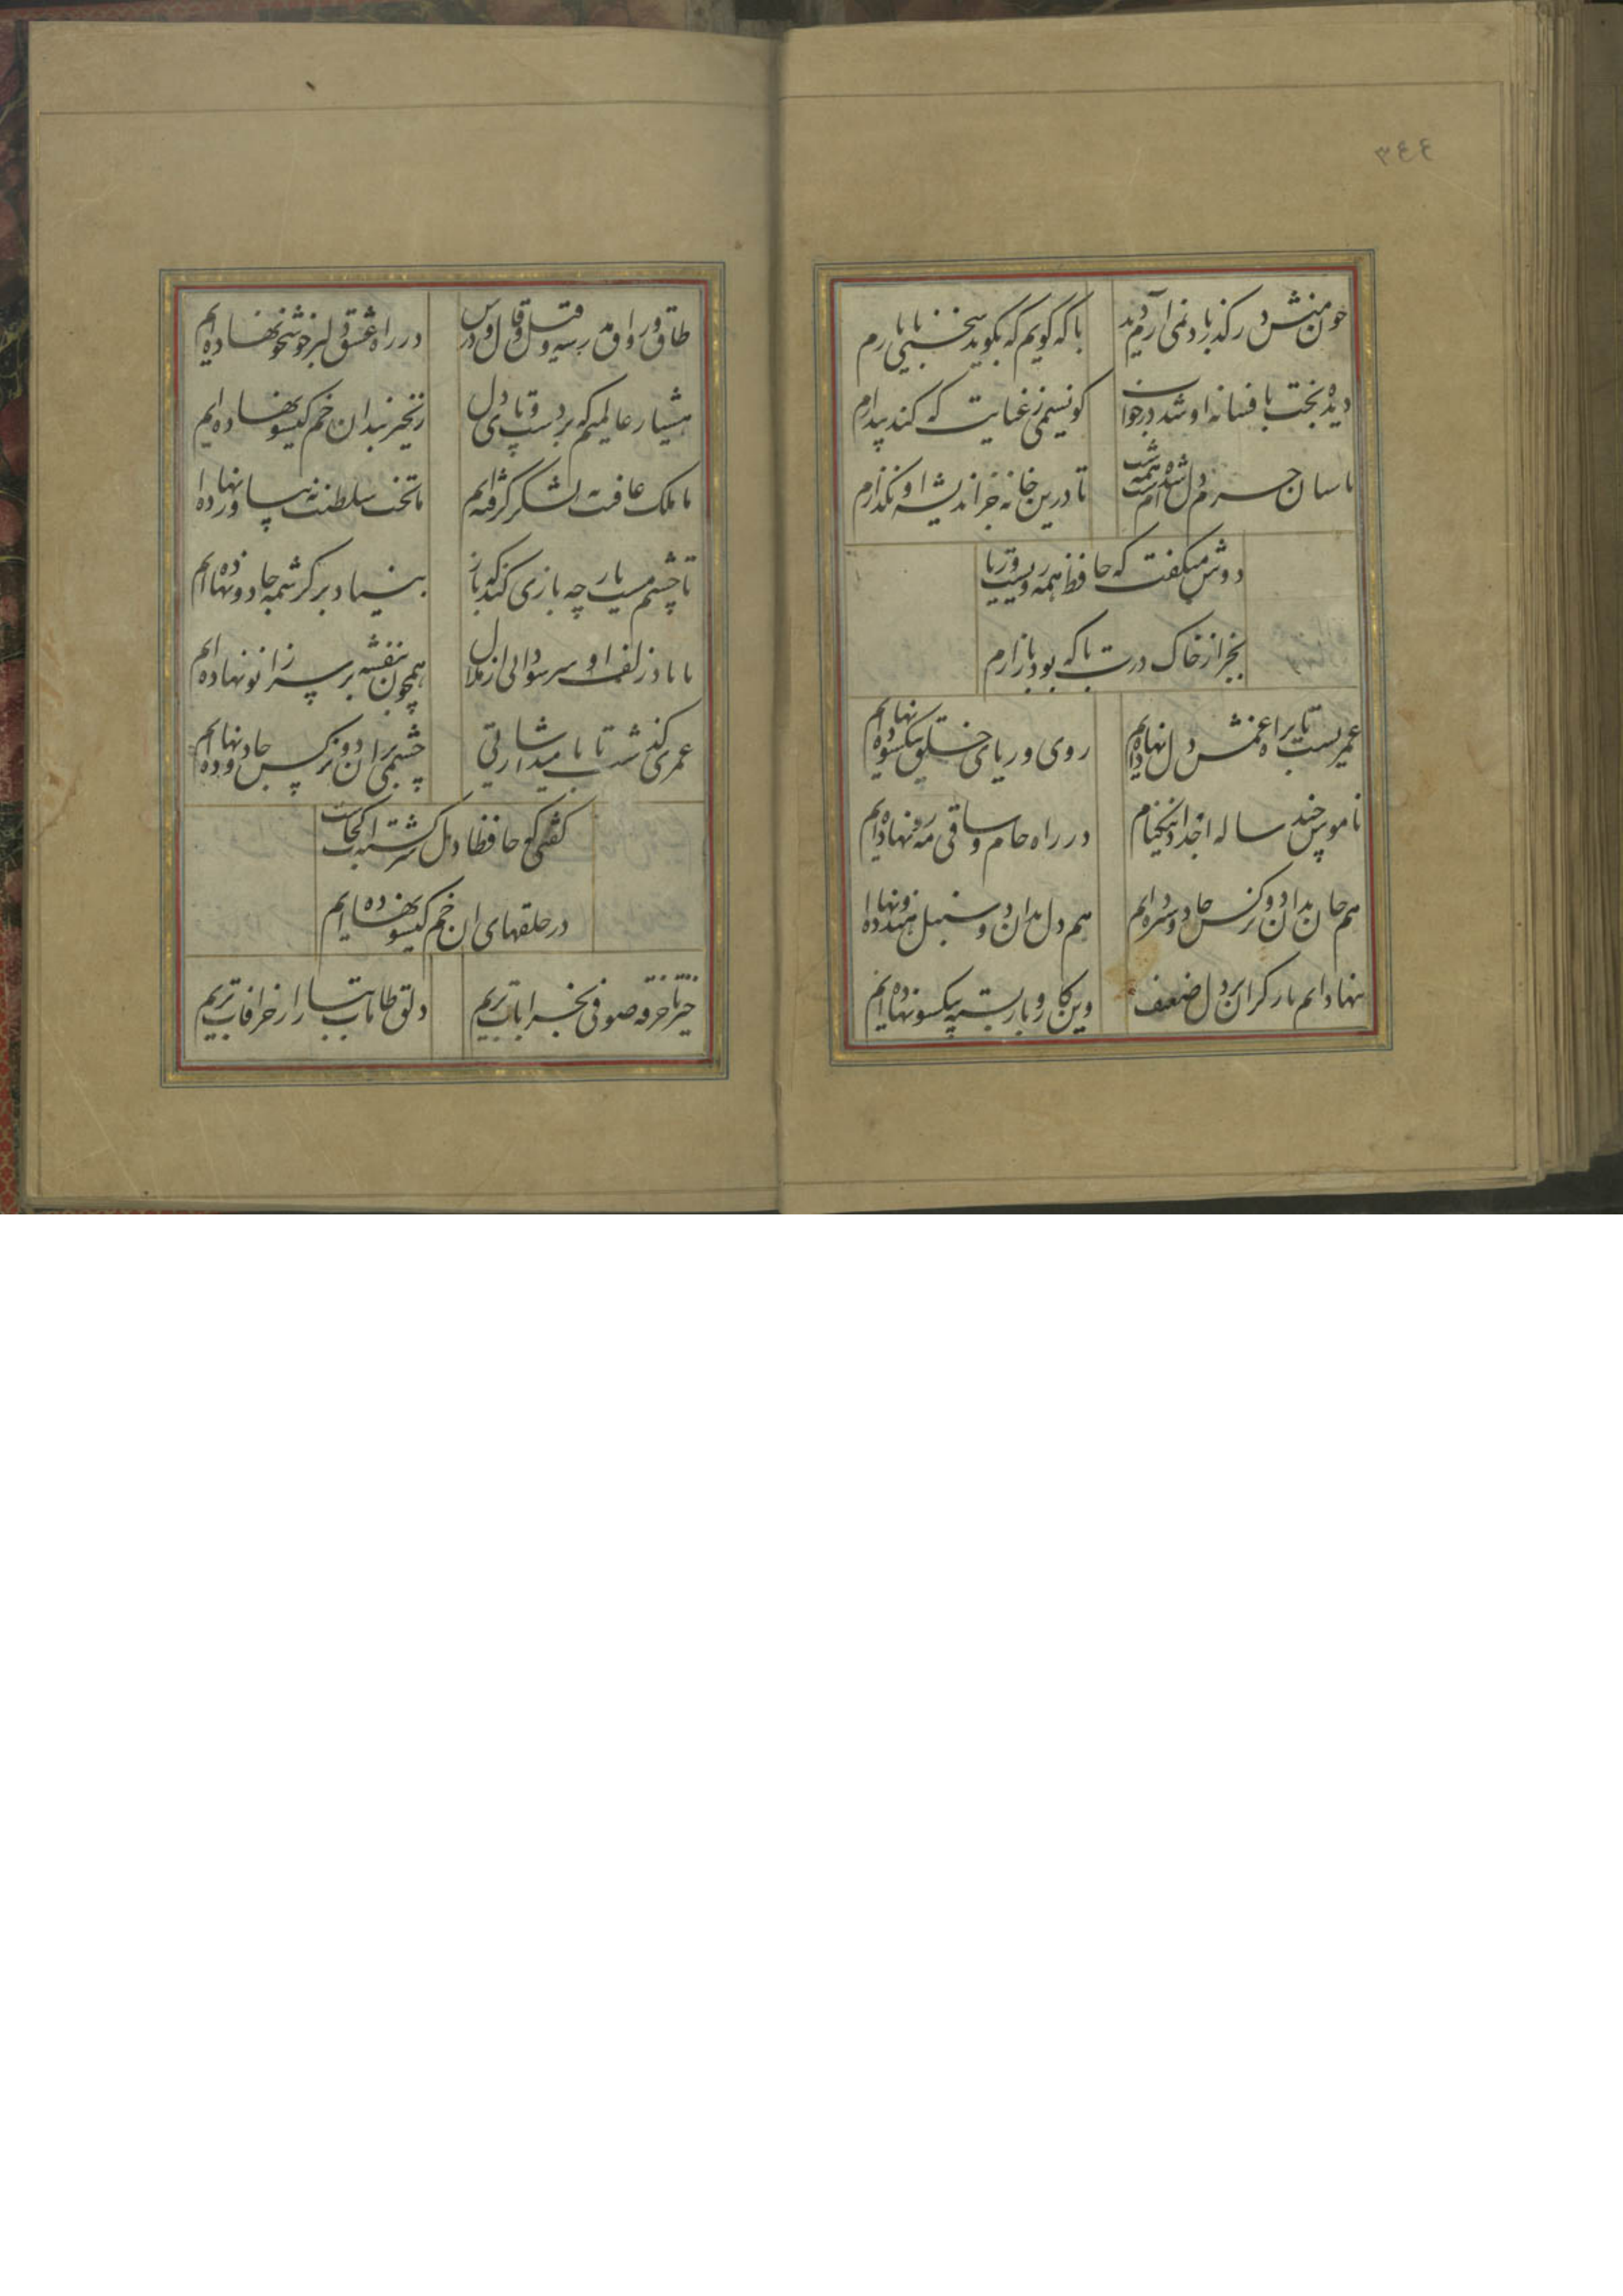 ٣٤٤
چون منش در گذر باد نمی‌آرم دید
با که گویم که بگوید سخنی با یارم
دیده بخت بافسانه او شد در خواب
کو نسیمی ز عنایت که کند بیدارم
پاسبان حرم دل شده‌ام شب همه شب
تا درین خانه جز اندیشه او نگذارم
دوش میگفت که حافظ همه رویست و ریا
بجز از خاک درت با که بود بازارم
عمریست تا براه غمش دل نهاده‌ایم
روی و ریای خلق بیکسو نهاده‌ایم
ناموس چند ساله اجداد نیکنام
در راه جام و ساقی مه‌رو نهاده‌ایم
هم جان بدان دو نرگس جادو سپرده‌ایم
هم دل بدان دو سنبل هندو نهاده‌ایم
ننهاده‌ایم بار گران بر دل ضعیف
وین کار و بار بسته بیکسو نهاده‌ایم
طاق و رواق مدرسه و قیل و قال درس
در راه عشق دلبر خوشخو نهاده‌ایم
هشیار عالمیم که بر دست و پای دل
زنجیر بند از ان خم گیسو نهاده‌ایم
ما ملک عافیت نه بلشکر گرفته‌ایم
ما تخت سلطنت نه ببازو نهاده‌ایم
تا چشم مست یار چه بازی کند که باز
بنیاد بر کرشمه جادو نهاده‌ایم
ما باد زلف او سر سودائی از ملال
همچون بنفشه بر سر زانو نهاده‌ایم
عمری گذشت تا بامید اشارتی
چشمی بران دو نرگس جادو نهاده‌ایم
گفتی که حافظا دل سرگشته‌ات کجاست
در حلقهای ان خم گیسو نهاده‌ایم
خیز تا خرقه صوفی بخرابات بریم
دلق طامات ببازار خرافات بریم